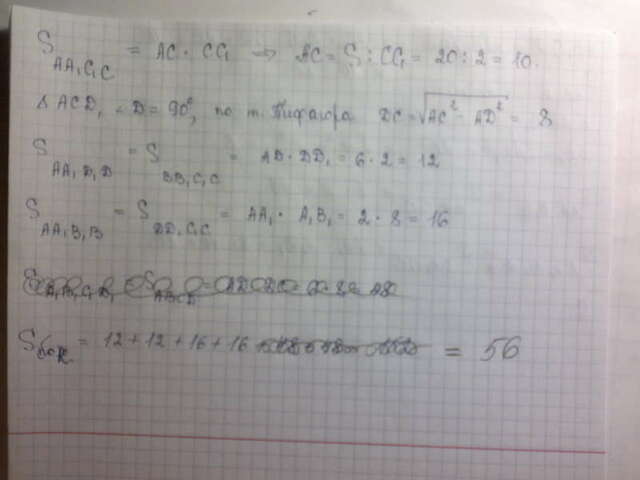 S AA₁C₁C = AC · CC₁ ⇒ AC = S : CC₁ = 20 : 2 = 10.
Δ ACD, ∠D = 90°, по т. Пифагора DC = √AC² - AD² = 8
S AA₁D₁D = S BB₁C₁C = AD · DD₁ = 6 · 2 = 12
S AA₁B₁B = S DD₁C₁C = AA₁ · A₁B₁ = 2 · 8 = 16
S бок = 12 + 12 + 16 + 16 = 56